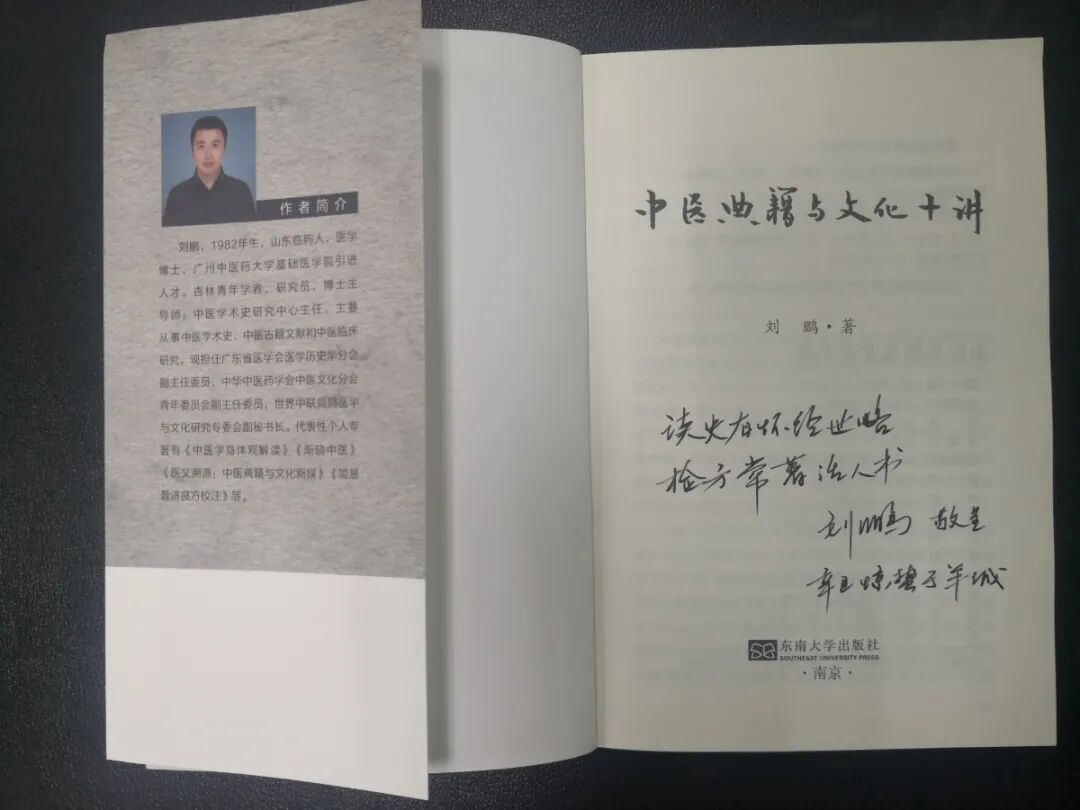 作者简介
刘鹏，1982年生，山东临朐人，医学
博士，广州中医药大学基础医学院引进
人才，杏林青年学者、研究员、博士生
导师，中医学术史研究中心主任，主要
从事中医学术史、中医古籍文献和中医临床
研究。现担任广东省医学会医学历史学分会
副主任委员，中华中医药学会中医文化分会
青年委员会副主任委员，世界中联扁鹊医学
与文化研究专委会副秘书长。代表性个人专
著有《中医学身体观解读》《渐晓中医》
《医义溯源：中医典籍与文化新探》《简易
普济良方校注》等。
中医典籍与文化十讲
刘 鹏·著
读史有怀经世略
检方常著活人书
刘鹏 敬呈
辛丑 于羊城
东南大学出版社
SOUTHEAST UNIVERSITY PRESS
·南京·